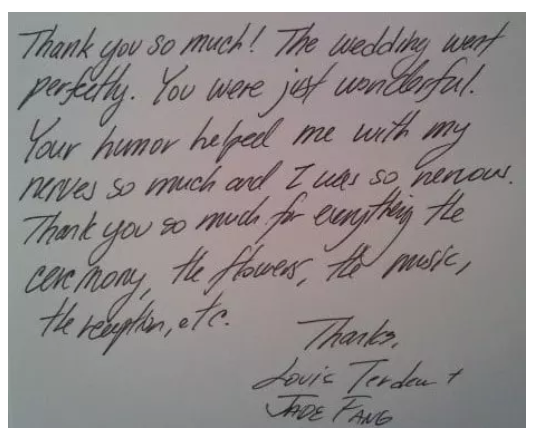 Thank you so much! The wedding went
perfectly. You were just wonderful.
Your humor helped me with my
nerves so much and I was so nervous.
Thank you so much for everything the
ceremony, the flowers, the music,
the reception, etc.
Thanks,
Louis +
JADE FANG